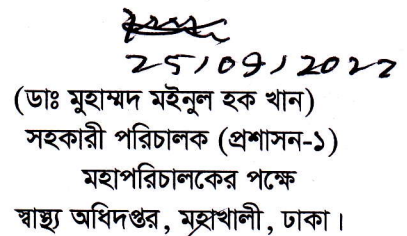 25/09/2022
(ডাঃ মুহাম্মদ মইনুল হক খান)
সহকারী পরিচালক (প্রশাসন-১)
মহাপরিচালকের পক্ষে
স্বাস্থ্য অধিদপ্তর, মহাখালী, ঢাকা।